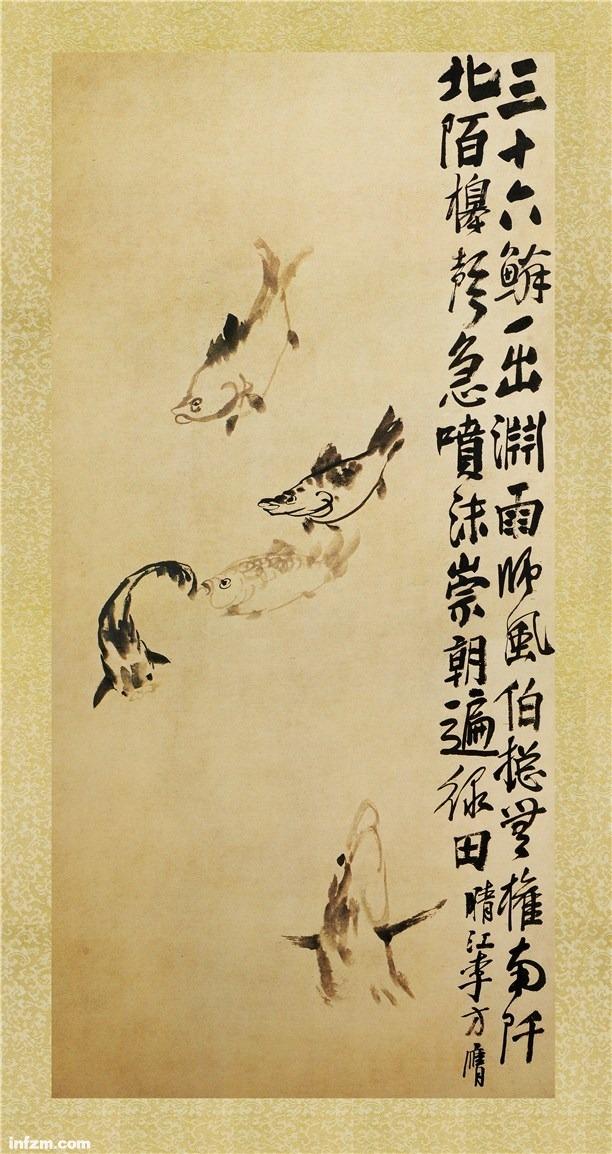 三十六鱗一出淵雨師風伯揔無權南阡
北陌槔聲急噴沫崇朝遍綠田
晴江李方膺
infzm.com